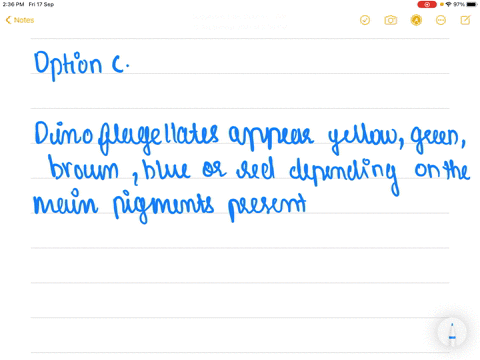 2:36 PM Fri 17 Sep
97%
Notes
Option C.
Dinoflagellates appear yellow, green,
brown, blue or red depending on the
main pigments present